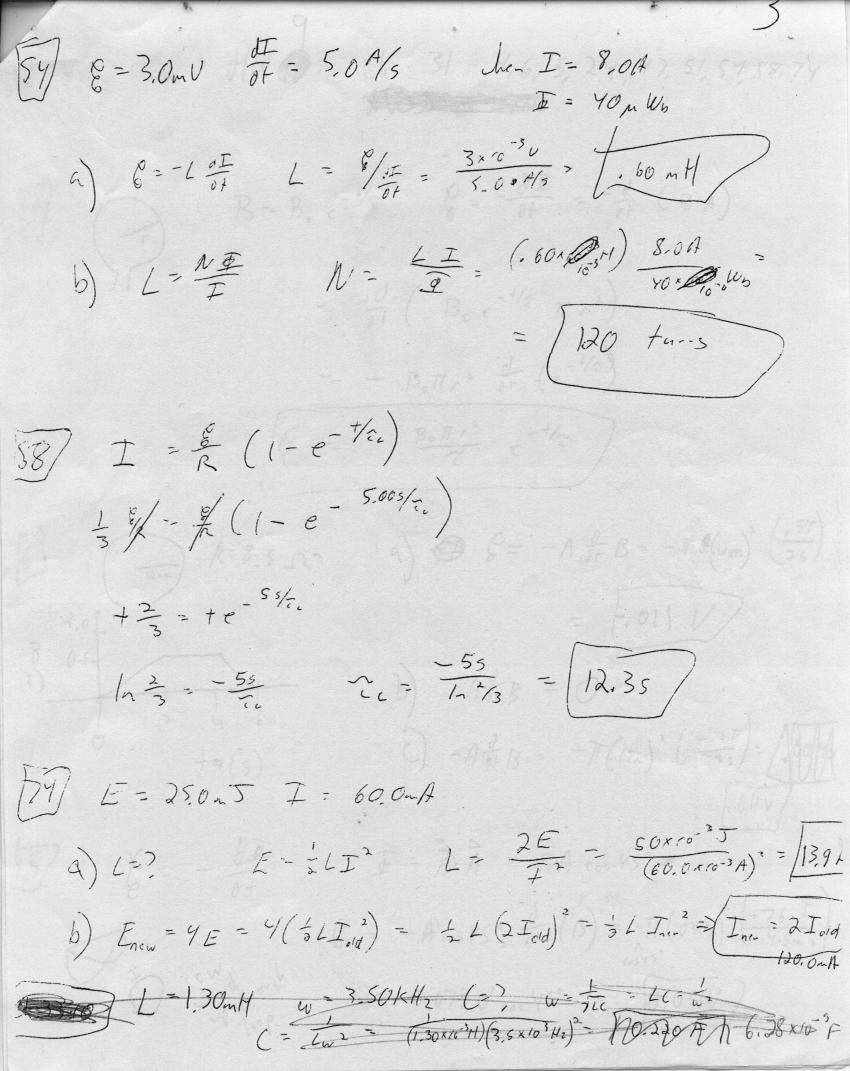 3
54 ℰ = 3.0mV dI/dt = 5.0 A/s when I = 8.0A
Φ = 40 μ Wb
a) ℰ = -L dI/dt L = ℰ/dI/dt = 3×10⁻³V/5.0 A/s = .60 mH
b) L = NΦ/I N = LI/Φ = (.60×10⁻³H) 8.0A/40×10⁻⁶Wb =
= 120 turns
58 I = ℰ/R (1 - e^-t/τL)
1/3 ℰ/R = ℰ/R (1 - e^-5.00s/τL)
+2/3 = +e^-5s/τL
ln 2/3 = -5s/τL τL = -5s/ln 2/3 = 12.3s
74 E = 25.0mJ I = 60.0mA
a) L=? E = ½LI² L = 2E/I² = 50×10⁻³J/(60.0×10⁻³A)² = 13.9H
b) Enew = 4E = 4(½LIold²) = ½L(2Iold)² = ½LInew² ⇒ Inew = 2Iold
120.0mA
L = 1.30mH ω = 3.50KHz C=? = LC = 1/ω²
C = 1/Lω² = 1/(1.30×10⁻³H)(3.5×10³Hz)² =